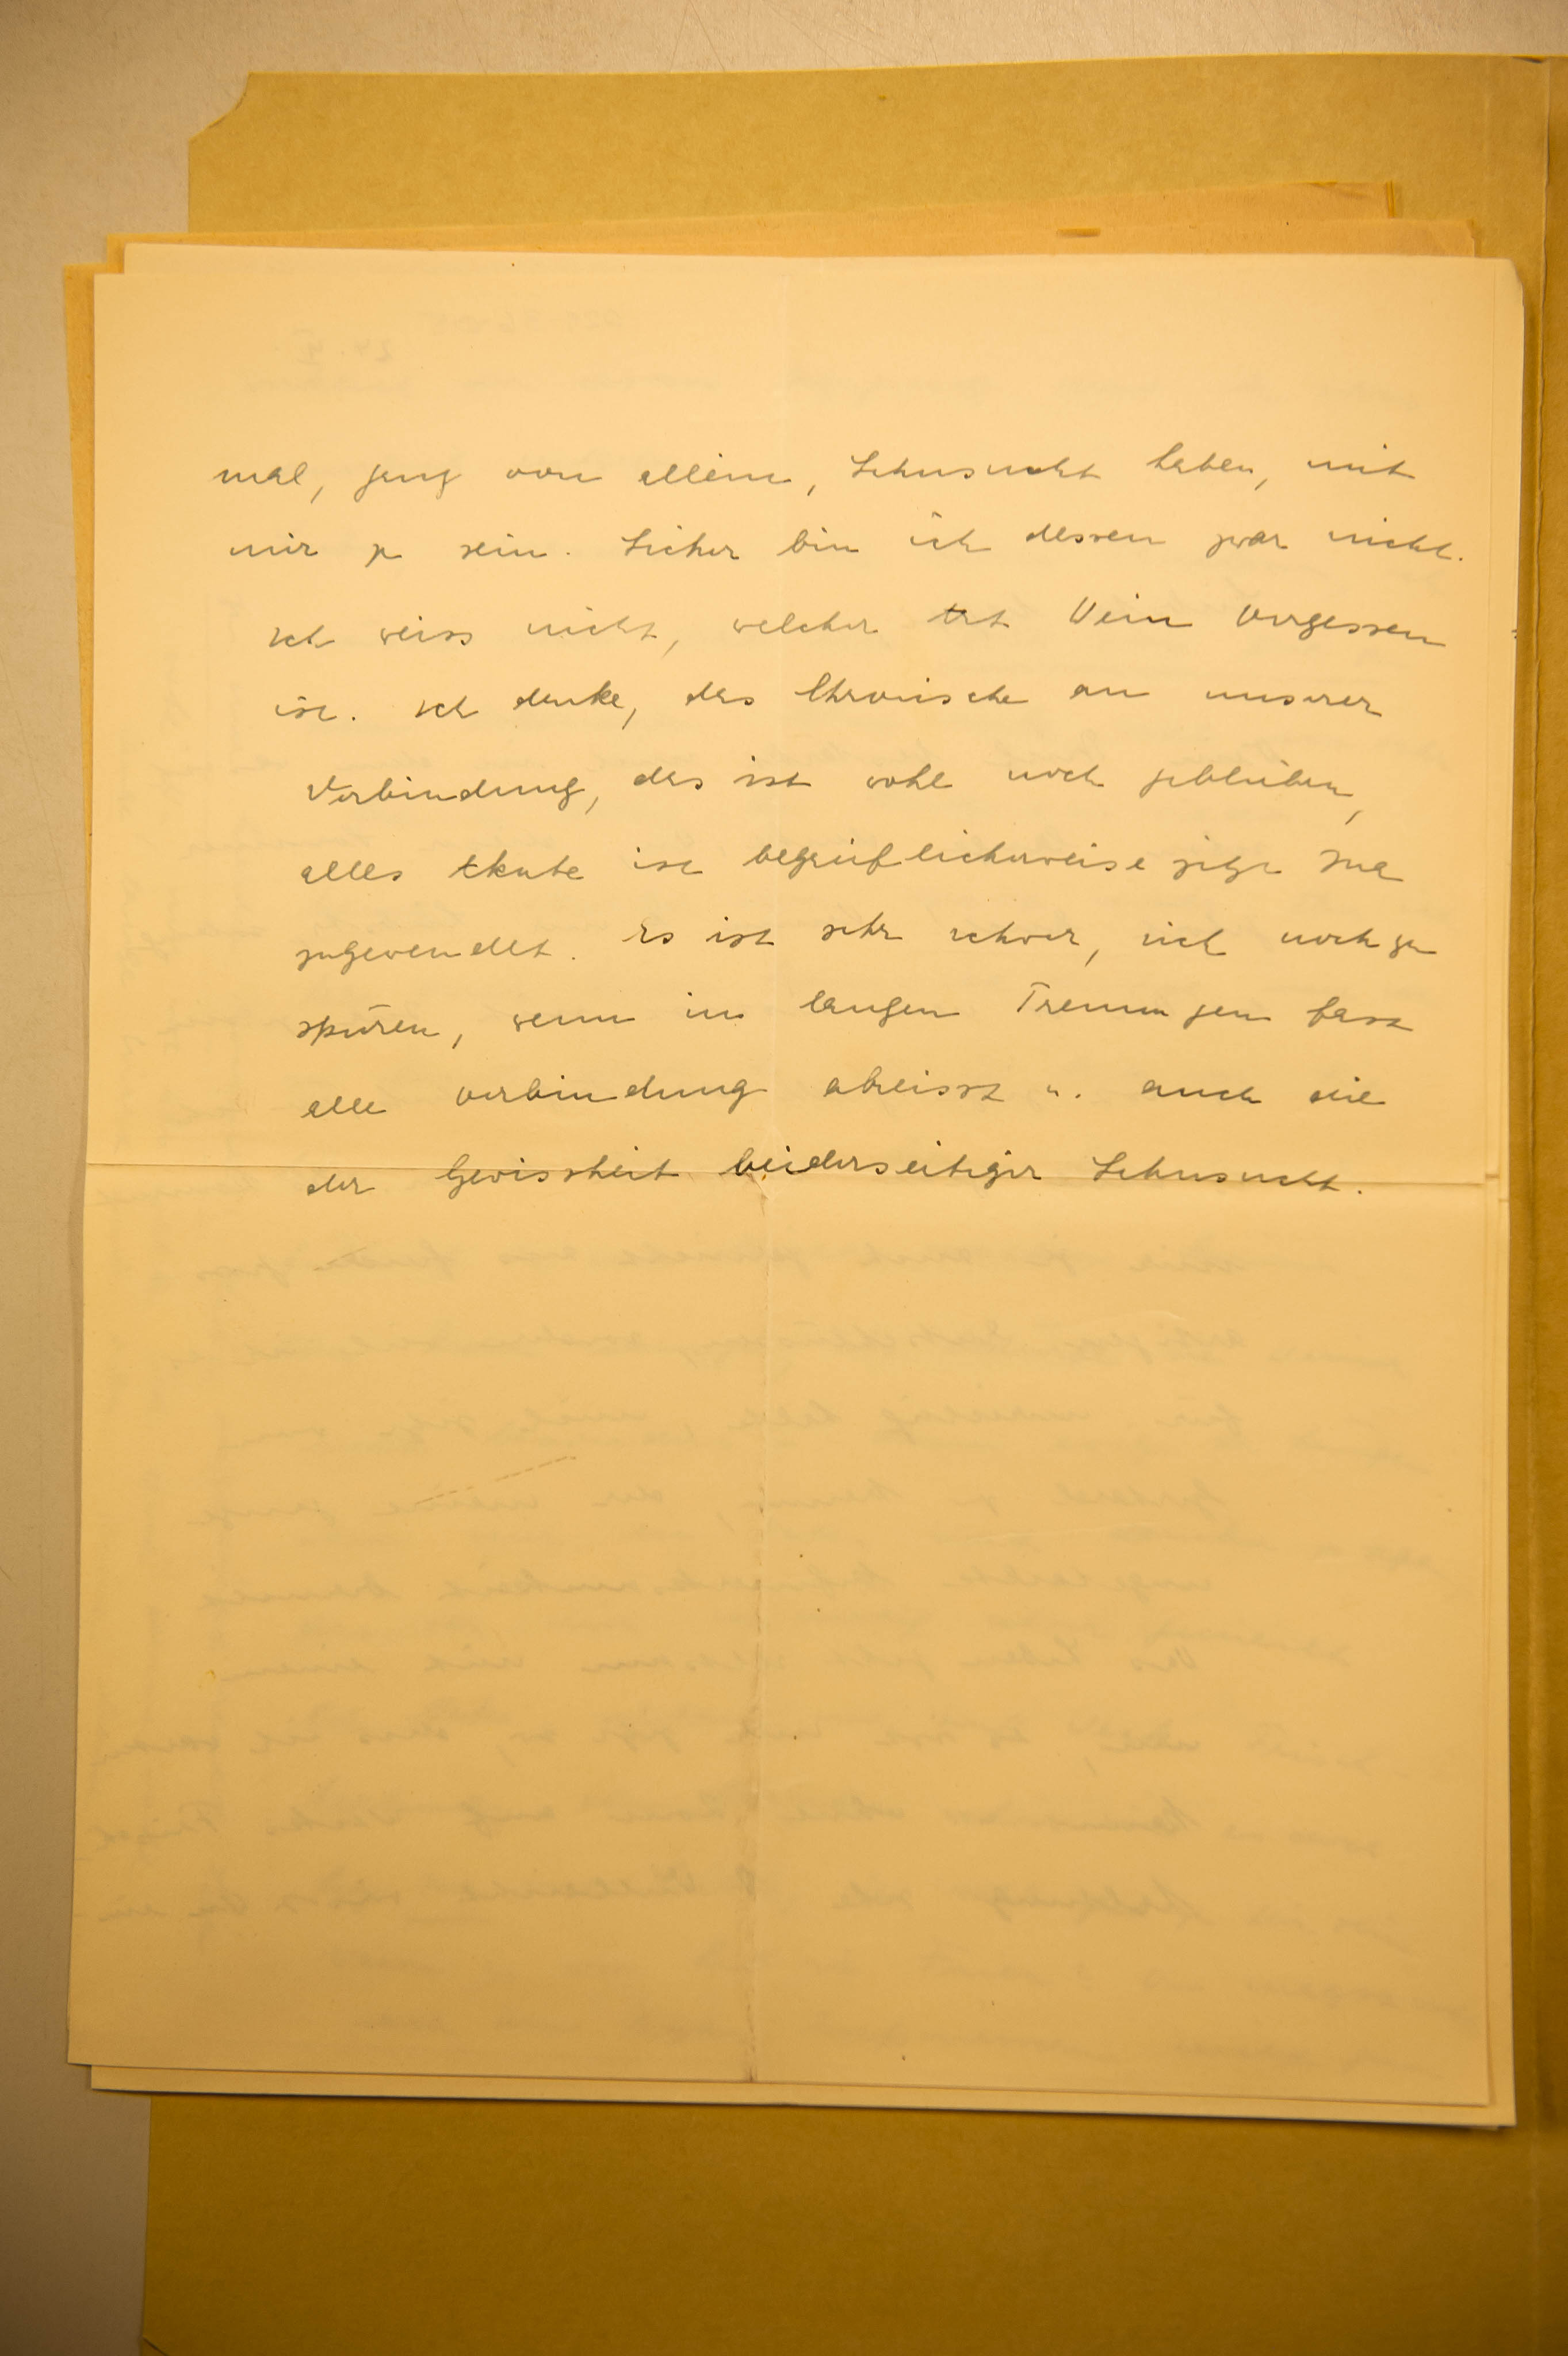 mal, ganz von allein, Sehnsucht haben, mit
mir zu sein. Sicher bin ich dessen zwar nicht.
Ich weiss nicht, welcher Art Dein Vergessen
ist. Ich denke, das Chronische an unserer
Verbindung, das ist wohl noch geblieben,
alles Akute ist begreiflicherweise jetzt
zugewendet. Es ist sehr schwer, sich noch zu
spüren, wenn in langen Trennungen fast
alle Verbindung abreisst u. auch die
der Gewissheit beiderseitiger Sehnsucht.